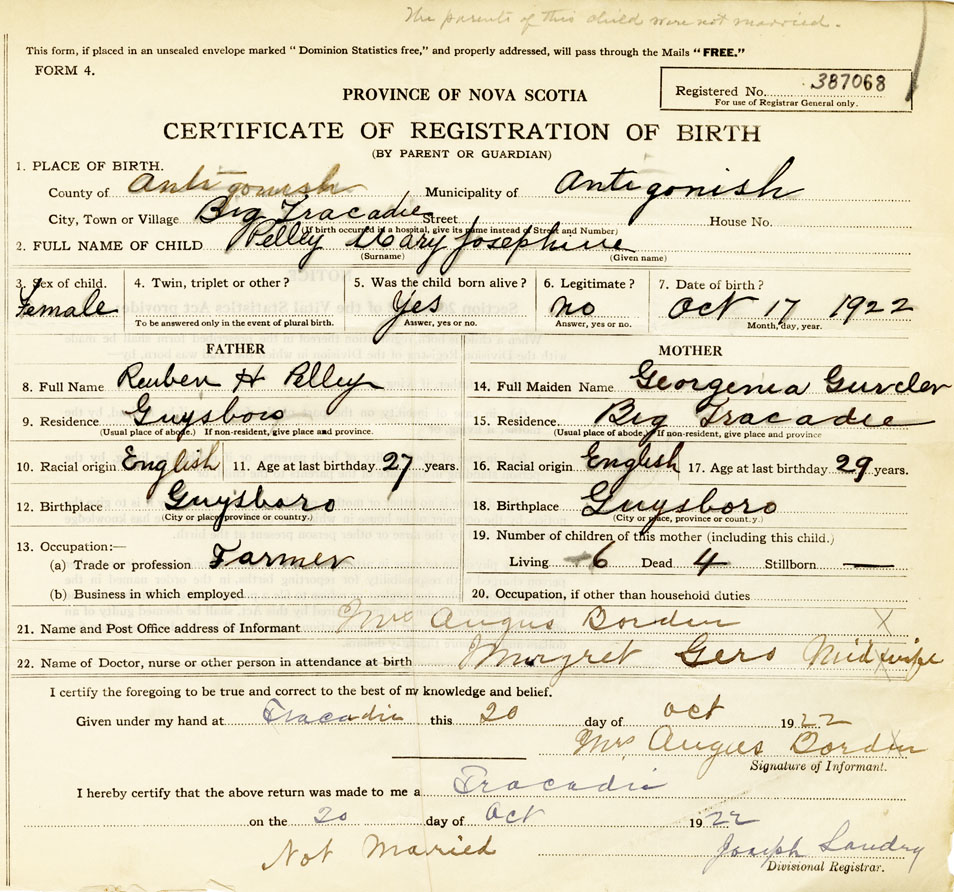 The parents of this child were not married.
This form, if placed in an unsealed envelope marked "Dominion Statistics free," and properly addressed, will pass through the Mails "FREE."
FORM 4.
Registered No. 387068
For use of Registrar General only.
PROVINCE OF NOVA SCOTIA
CERTIFICATE OF REGISTRATION OF BIRTH
(BY PARENT OR GUARDIAN)
1. PLACE OF BIRTH.
County of Antigonish Municipality of Antigonish
City, Town or Village Big Tracadie Street House No.
(If birth occurred in a hospital, give its name instead of Street and Number)
2. FULL NAME OF CHILD Pelley Mary Josephine
(Surname) (Given name)
3. Sex of child. 4. Twin, triplet or other? 5. Was the child born alive? 6. Legitimate? 7. Date of birth?
Female Yes no Oct 17 1922
To be answered only in the event of plural birth. Answer, yes or no. Answer, yes or no. Month, day, year.
FATHER MOTHER
8. Full Name Reuben H Pelley 14. Full Maiden Name Georgenia
9. Residence Guysboro 15. Residence Big Tracadie
(Usual place of abode.) If non-resident, give place and province. (Usual place of abode.) If non-resident, give place and province
10. Racial origin English 11. Age at last birthday 27 years. 16. Racial origin English 17. Age at last birthday 29 years.
12. Birthplace Guysboro 18. Birthplace Guysboro
(City or place, province or country.) (City or place, province or country.)
13. Occupation:— 19. Number of children of this mother (including this child.)
(a) Trade or profession Farmer Living 6 Dead 4 Stillborn —
(b) Business in which employed 20. Occupation, if other than household duties
21. Name and Post Office address of Informant Mrs Angus Borden X
22. Name of Doctor, nurse or other person in attendance at birth Margret Gero Midwife
I certify the foregoing to be true and correct to the best of my knowledge and belief.
Given under my hand at Tracadie this 20 day of Oct 1922
Mrs Angus Borden
Signature of Informant.
I hereby certify that the above return was made to me a Tracadie
on the 20 day of Oct 1922
Not Maried Joseph Landry
Divisional Registrar.